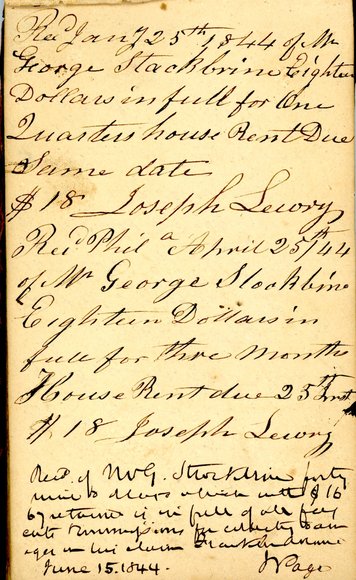 Recd Jany 25th 1844 of Mr
George Stockbrine Eighteen
Dollars in full for One
Quarters house Rent Due
Same date
$18 Joseph Lewry
Recd Phila April 25th/44
of Mr George Stockbrine
Eighteen Dollars in
full for three Months
House Rent due 25th Inst
$18 Joseph Lewry
Recd. of Mr G. Stockbrine forty
nine dollars which with $16
67 returned is in full of all
for collecting dam
ages on his claim
June 15. 1844. Page